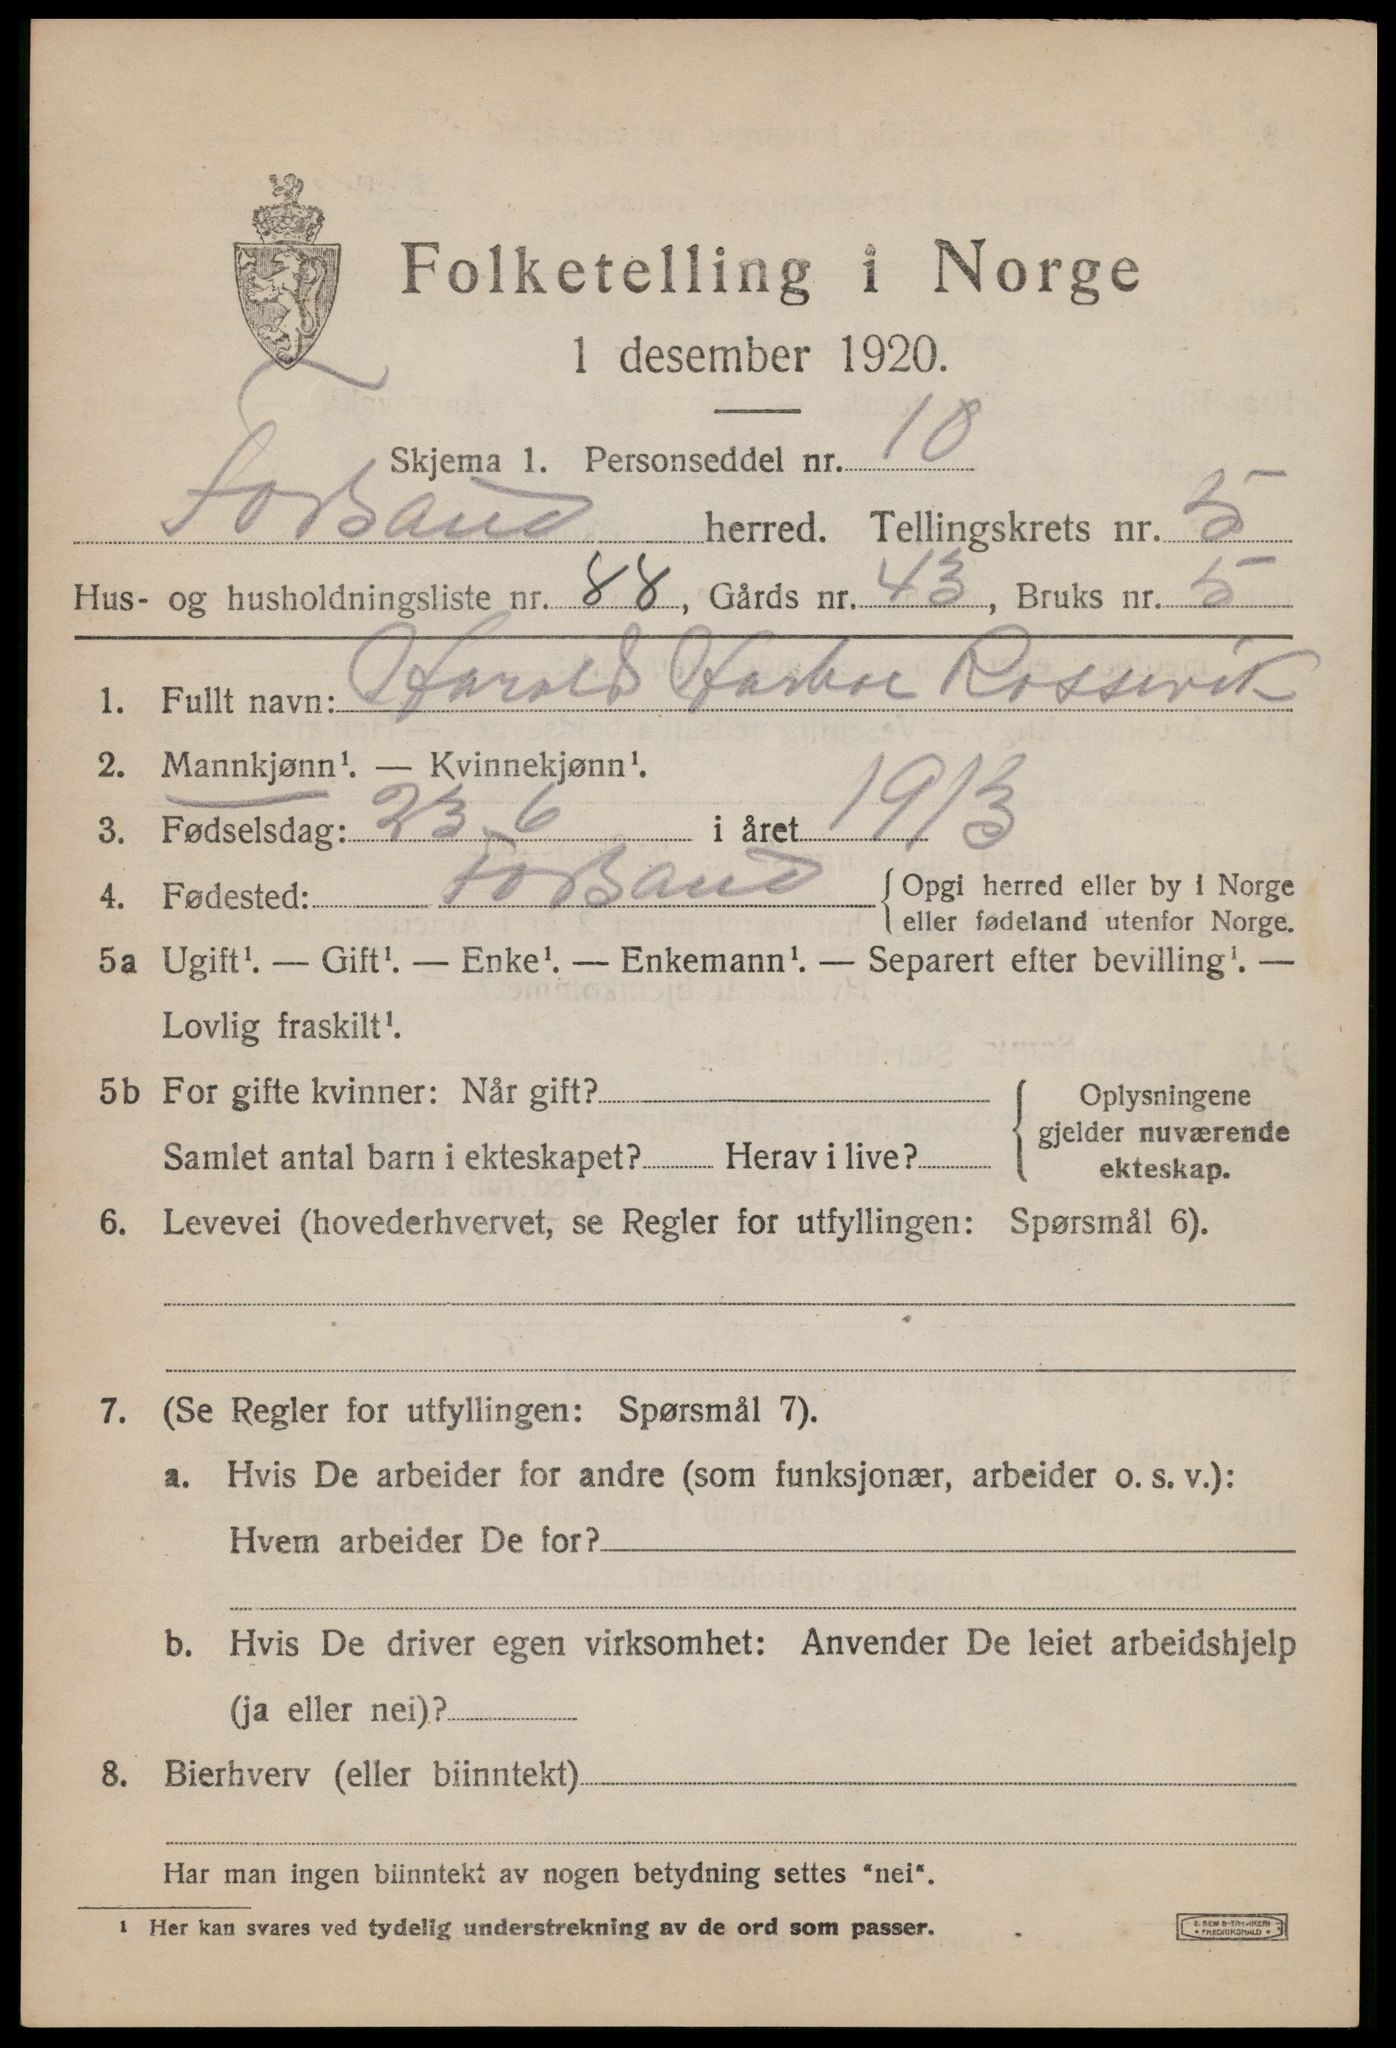 Folketelling i Norge
1 desember 1920.
Skjema 1. Personseddel nr. 10
Forsand herred. Tellingskrets nr. 5
Hus- og husholdningsliste nr. 88, Gårds nr. 43, Bruks nr. 5
1. Fullt navn: Harald Harboe Rossevik
2. Mannkjønn¹. — Kvinnekjønn¹.
3. Fødselsdag: 23 6 i året 1913
4. Fødested: Forsand { Opgi herred eller by i Norge
eller fødeland utenfor Norge.
5a Ugift¹. — Gift¹. — Enke¹. — Enkemann¹. — Separert efter bevilling¹. —
Lovlig fraskilt¹.
5b For gifte kvinner: Når gift?
Samlet antal barn i ekteskapet? Herav i live?
Oplysningene
gjelder nuværende
ekteskap.
6. Levevei (hovederhvervet, se Regler for utfyllingen: Spørsmål 6).
7. (Se Regler for utfyllingen: Spørsmål 7).
a. Hvis De arbeider for andre (som funksjonær, arbeider o. s. v.):
Hvem arbeider De for?
b. Hvis De driver egen virksomhet: Anvender De leiet arbeidshjelp
(ja eller nei)?
8. Bierhverv (eller biinntekt)
Har man ingen biinntekt av nogen betydning settes "nei".
¹ Her kan svares ved tydelig understrekning av de ord som passer.
E. SEM B-TRYKKERI
* FREDRIKSHALD *